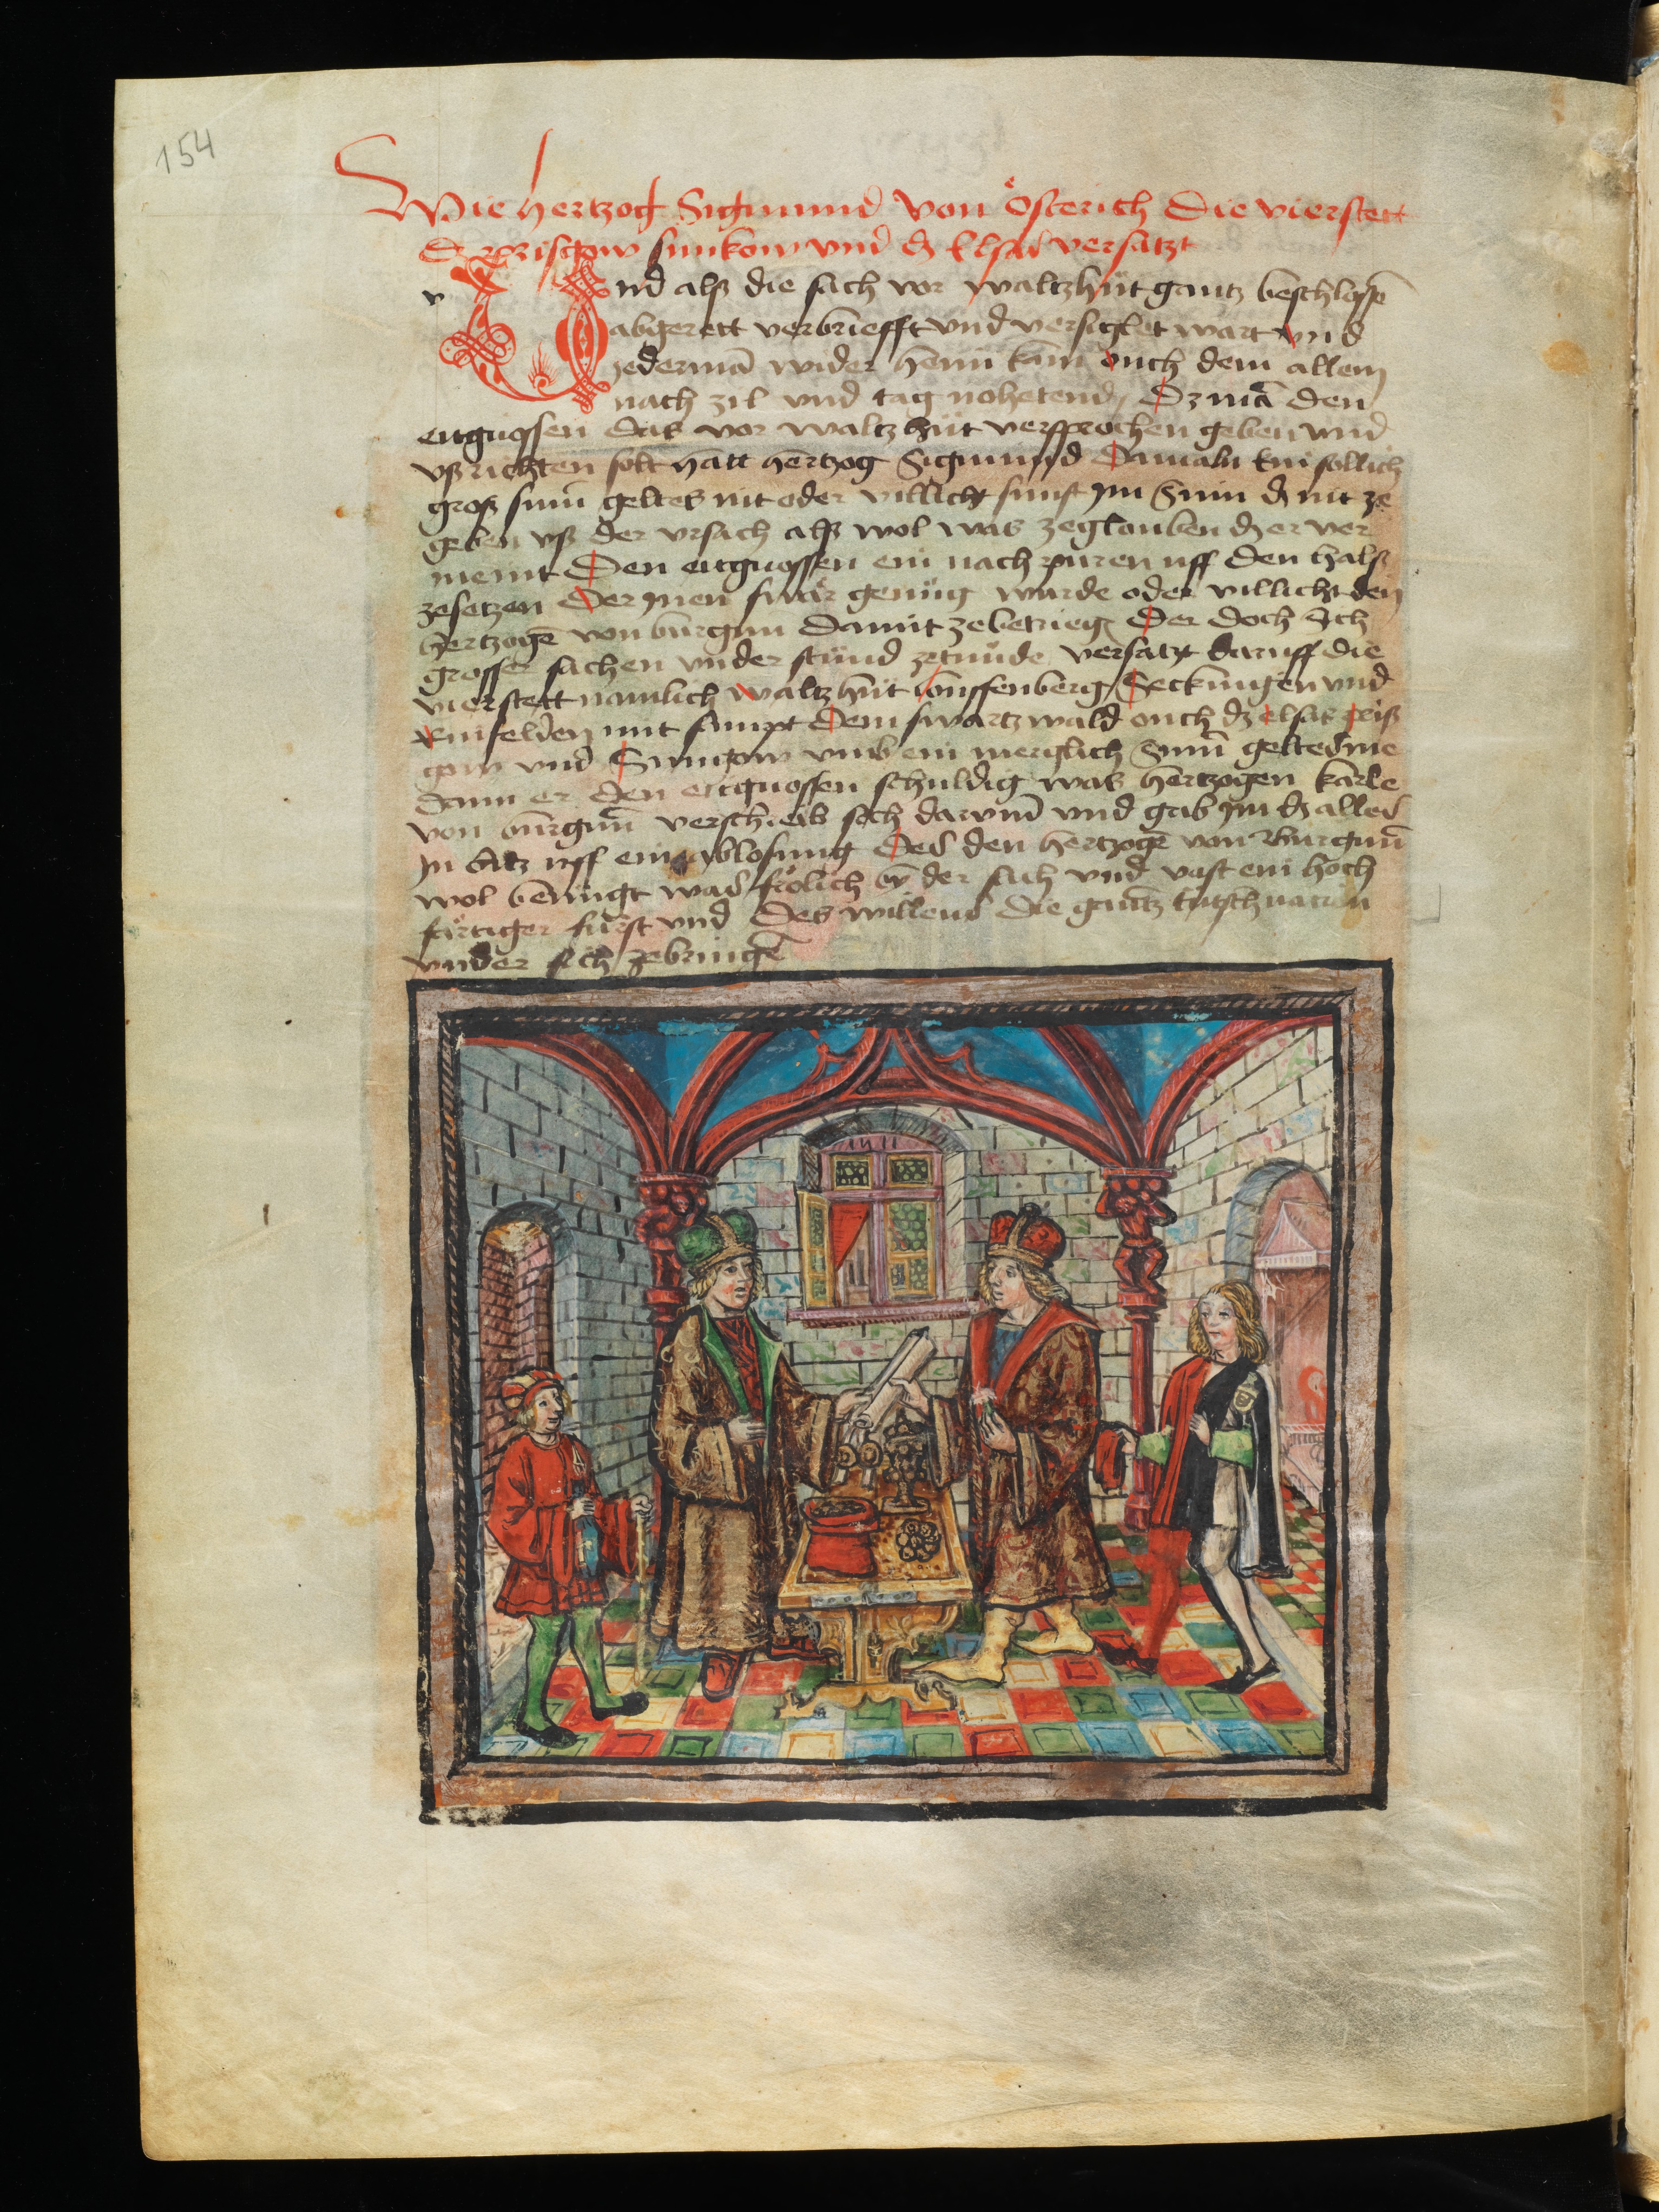 154
Wie hertzog Sigmund von Österich die vier stett
dz Brisgow sunkow und dz Elsas versatzt
v
Und alß die sach vor waltzhůt gantz beschlossē
abgerett verbriefft und versiglet wart und
yedermā wider heim kam ouch dem allem
nach zil und tag nohetend / Dz mā den
eitgnossen das vor waltzhůt versprochen geben und
ußrichten solt hatt hertzog Sigmund damaln kein sollich
groß sum̄ geltes nit oder villicht sunst jm Sinn dz nit ze
geben uß der ursach alß wol was zeglouben dz er ver
meint Den eitgnossen ein nachpuren uff den halß
zesetzen Der jnen swär genůg wurde oder villicht den
hertzogē von burgun damit zebetriegē Der doch sich
grosser sachen understůnd zetůnde versatzt daruff die
vier stett namlich waltzhůt louffenberg / Seckingen und
Rinfelden mit sampt dem swartzwald ouch dz elsas priß
gow und Suntgow umb ein mergklich Sum̄ geltes me
dann er den eitgnossen schuldig was hertzogen karle
von burgun̄ verschreib sich darum̄ und gab jm dz alles
jn Satz uff ein ablosung Des den hertzogē von Burgun̄
wol benůgt was frölich by der sach und vast ein hoch
färtiger fürst und des willens die gantz tütsch nation
under sich zebringē